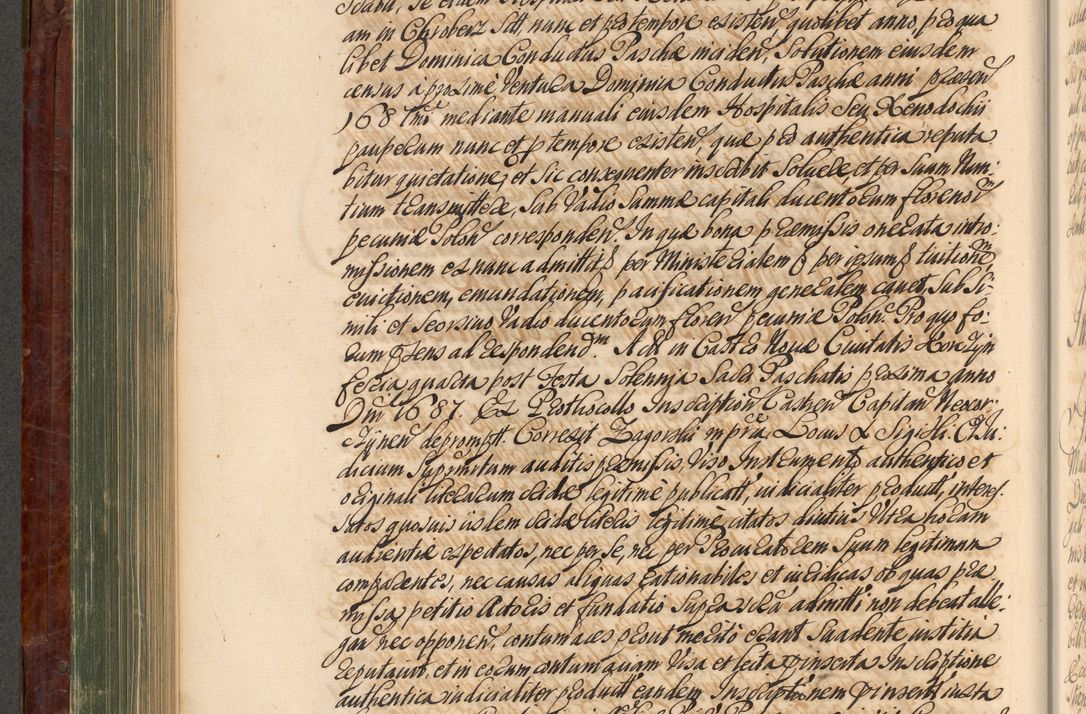 am in Chroberz Sitt, nunc et pro tempore existen, quolibet anno, pro qua
libet Dominica Conductus Paschæ maiden, Solutionem eiusdem
census a proximè Ventura Dominica Conductus Paschæ anni præsen
168 mediante manuali eiusdem Hospitalis Seu Xenodochii
pauperum nunc et p tempore existen, quæ pro authentica reputa
bitur quietatione, et Sic consequenter inscribit Soluere et per Suum Nun:
tium transmittere, Sub Vadio Summæ capitali ducentorum florenor
pecuniæ Polon corresponden. In quæ bona præmissis onerata intro:
missionem ex nunc admittit per Ministerialem per ipsum tuitione
euictionem, emundationem, pacificationem generalem cauet, Sub Si:
mili et Seorsiuo Vadio ducentorum floren pecuniæ Polon. Pro quo fo:
rum ad respondend. Act in Castro Nouæ Ciuitatis Korczyn
feria quarta post Festa Solennia Sacri Paschatis proxima anno
Dni 1687. Ex Prothocollo Inscription Castren Capitan Neocor:
czynen depromptt. Correxit Zagorski mpria, Locus L Sigilli.
dicium Supremum auditis præmissis, Viso Instrumento authentico et
originali literarum cridæ legitimè publicatt, iudicialiter product, interes
satos quosuis iisdem cridæ literis legitimè citatos diutius Vltra horam
audientiæ expectatos, nec per se, nec per Procuratorem Suum legitimum
comparentes, nec causas aliquas rationabiles et iuridicas ob quas præ
missa petitio Actoris et fundatio Supra admitti non debeat alle:
gan nec opponen, contumaces prout meritò erant Suadente iustitia
reputauit, et in eorum contumaciam Visa et lecta præinserta Inscriptione
authentica iudicialiter product eandem Inscriptionem præinsert iuxta